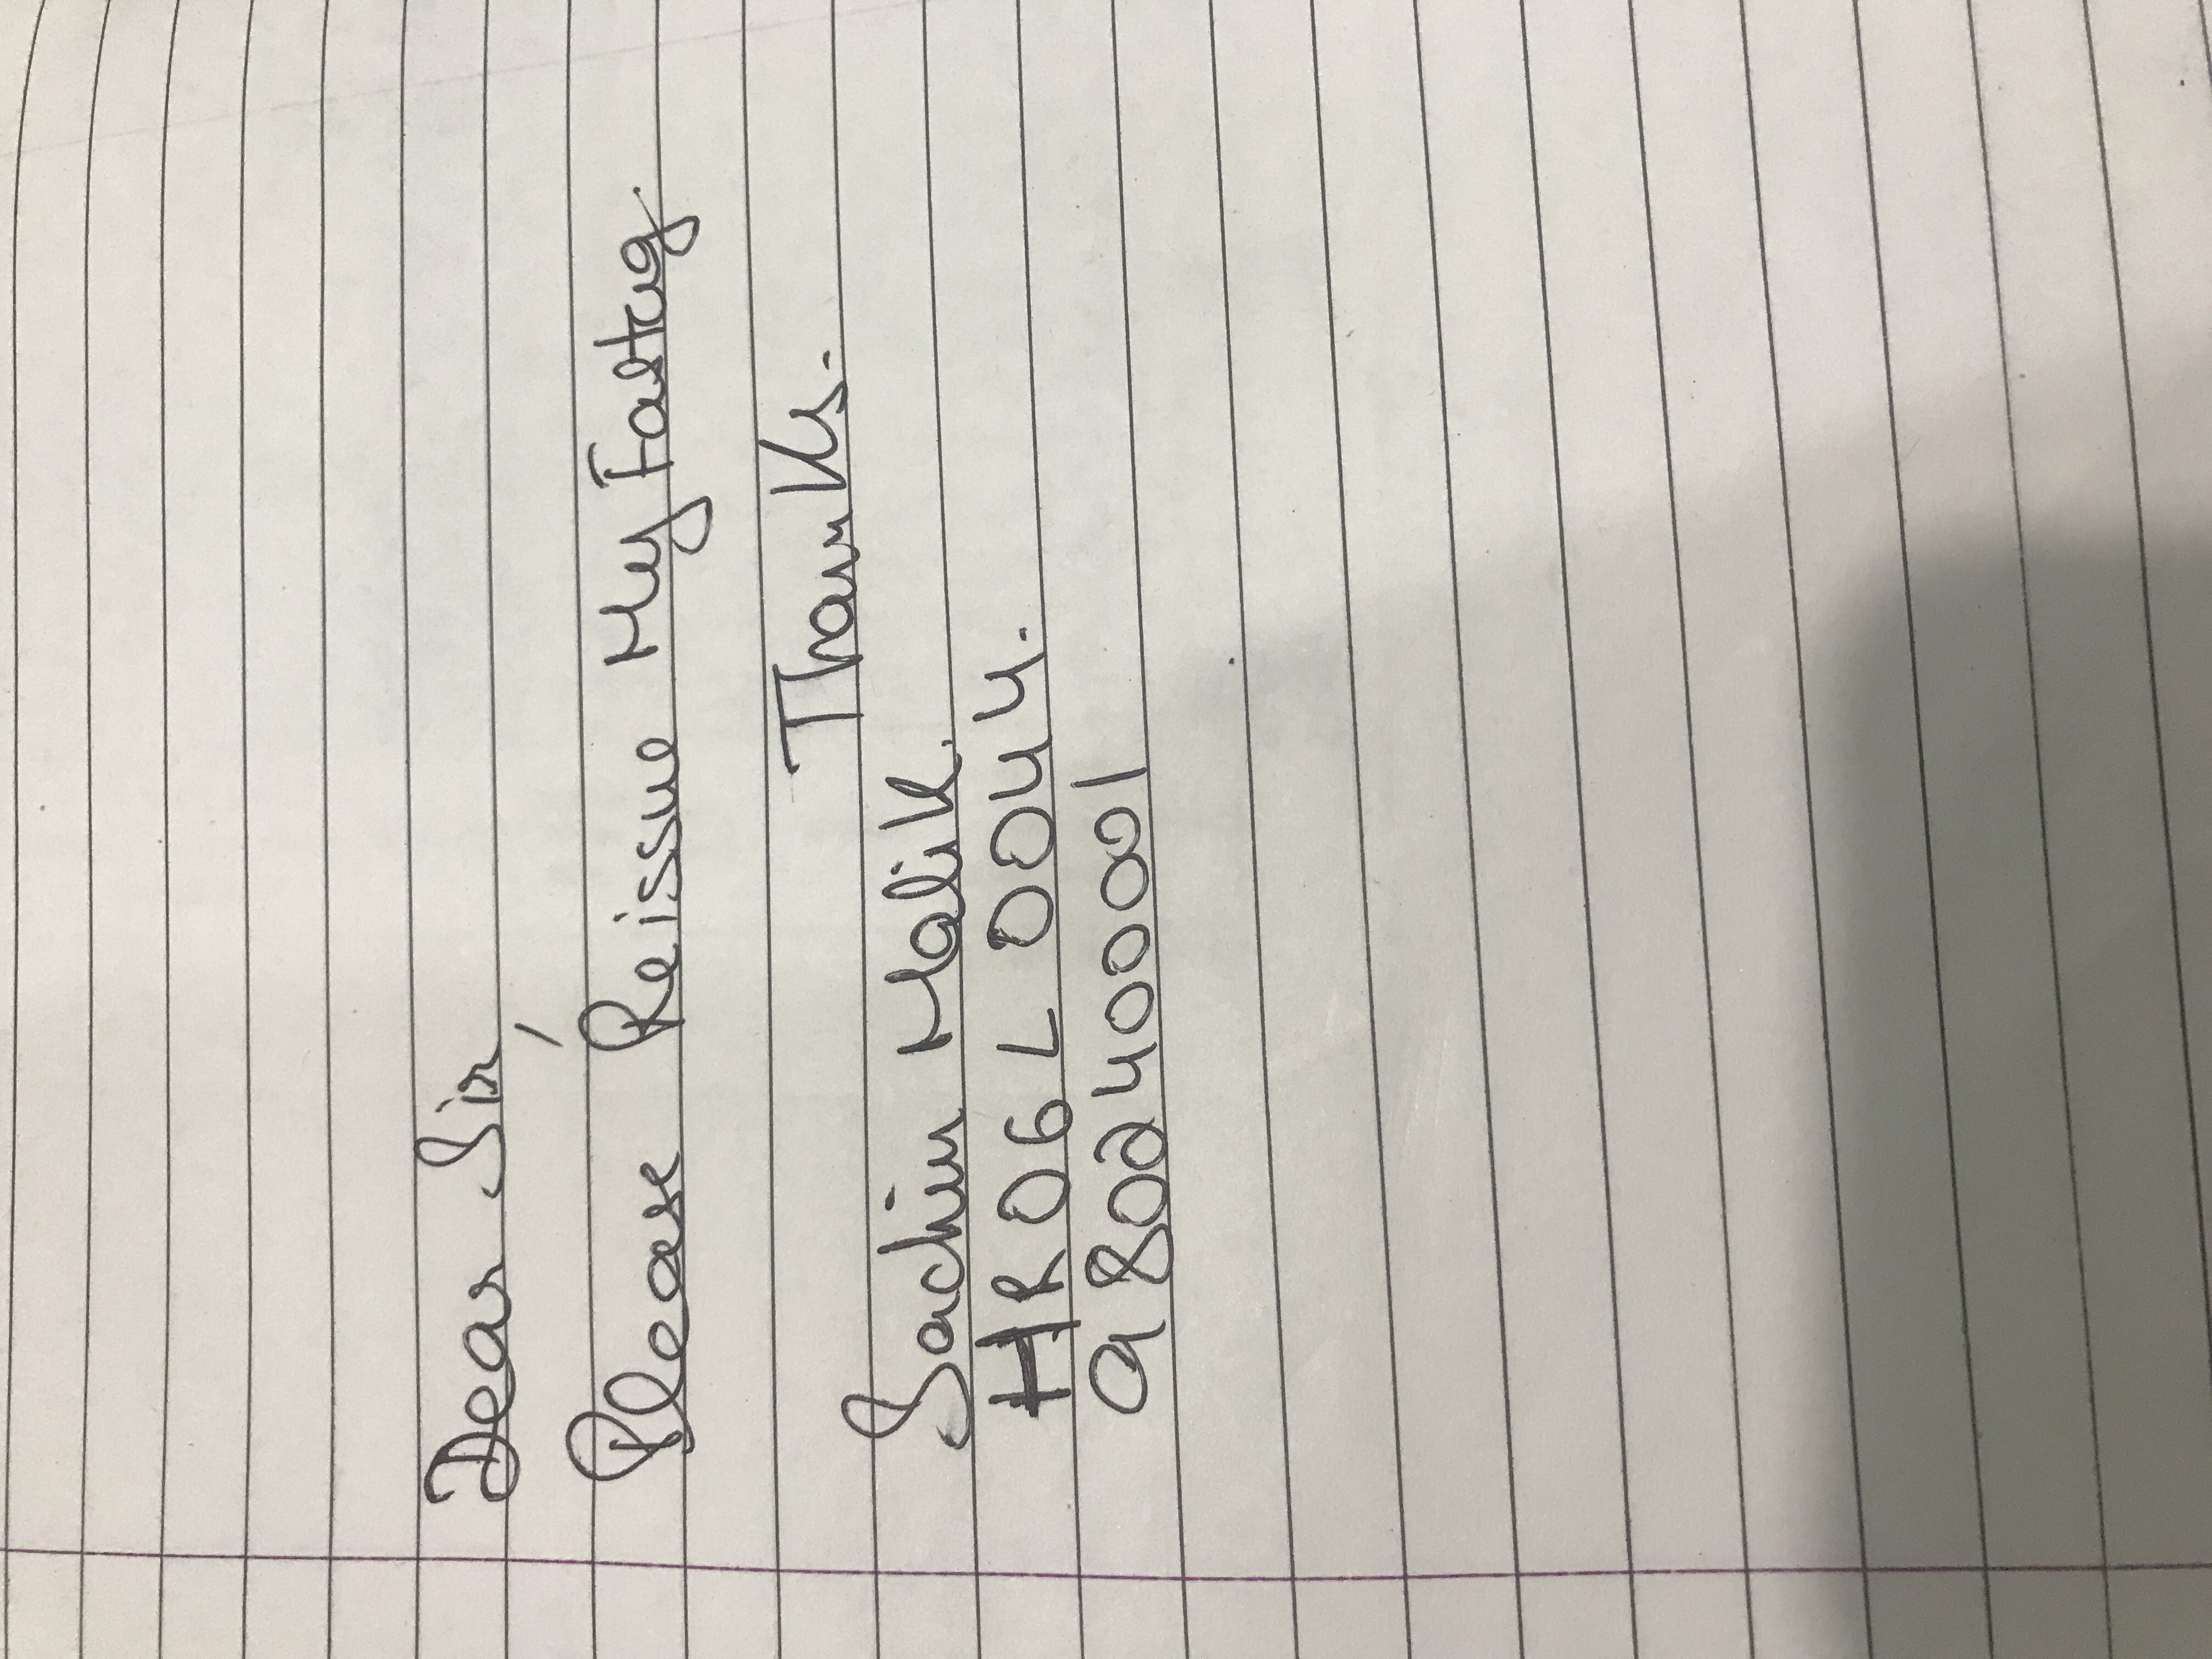 Dear Sir,
Please Reissue My Fastag
Thanks.
Sachin Malik.
HR06L0044.
9802400001